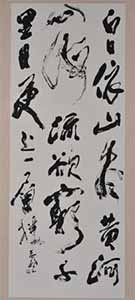 白日依山尽黄河
入海流欲窮千
里目更上一層楼